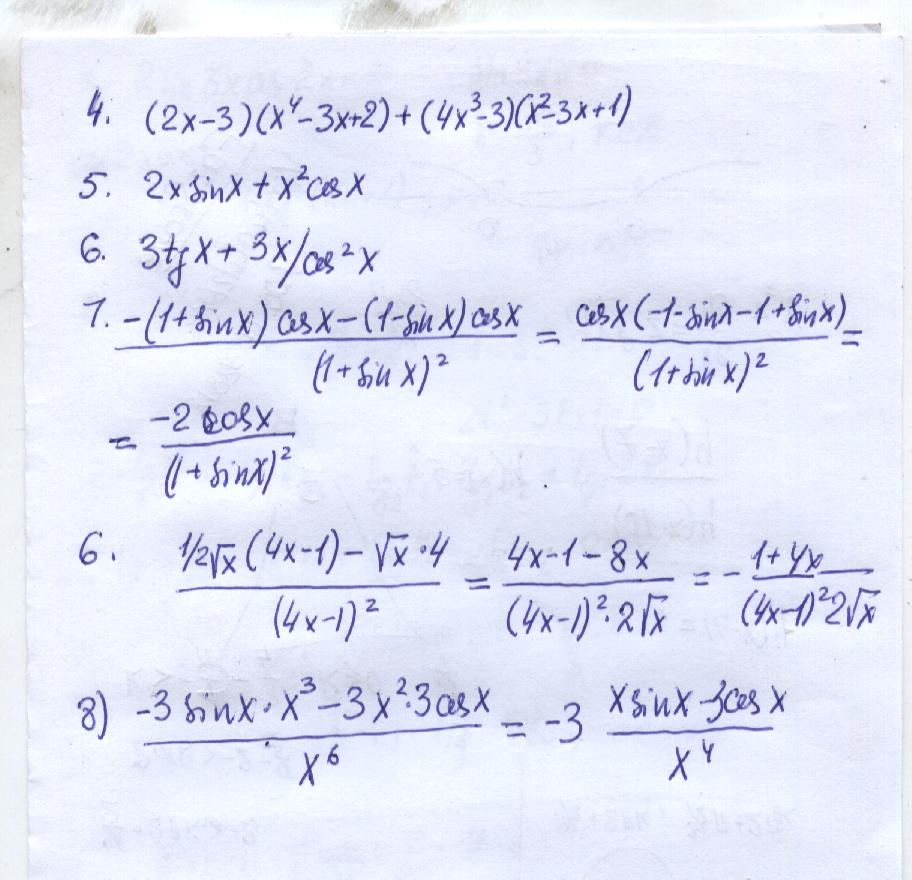 4. (2x-3)(x⁴-3x+2)+(4x³-3)(x²-3x+1)
5. 2x sinx + x²cosx
6. 3tgx + 3x/cos²x
7. (-(1+sinx)cosx-(1-sinx)cosx)/(1+sinx)² = (cosx(-1-sinx-1+sinx))/(1+sinx)² =
= (-2cosx)/(1+sinx)²
6. (1/2√x(4x-1)-√x·4)/(4x-1)² = (4x-1-8x)/((4x-1)²·2√x) = -(1+4x)/((4x-1)²2√x)
8) (-3sinx·x³-3x²·3cosx)/x⁶ = -3 (xsinx-3cosx)/x⁴